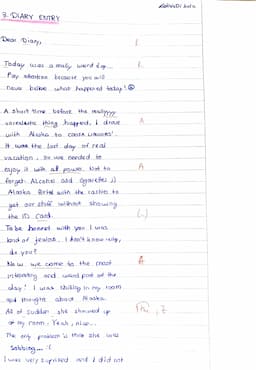 3. DIARY ENTRY
Dear Diary,
Today was a really weird day...
Pay attention because you will
never believe what happened today!
A short time before the really
unrealistic thing happened, I drove
with Alaska to
It was the last day of real
vacation, so we needed to
enjoy it with all power. Not to
forget: Alcohol and cigarettes ;)
Alaska flirted with the cashier to
get our stuff without showing
the ID card.
To be honest with you I was
kind of jealous. I don't know why,
do you?
Now we come to the most
interesting and weird part of the
day! I was chilling in my room
and thought about Alaska.
All of sudden she showed up
at my room. Yeah, nice...
The only problem is that she was
sobbing... :(
I was very suprised and I did not